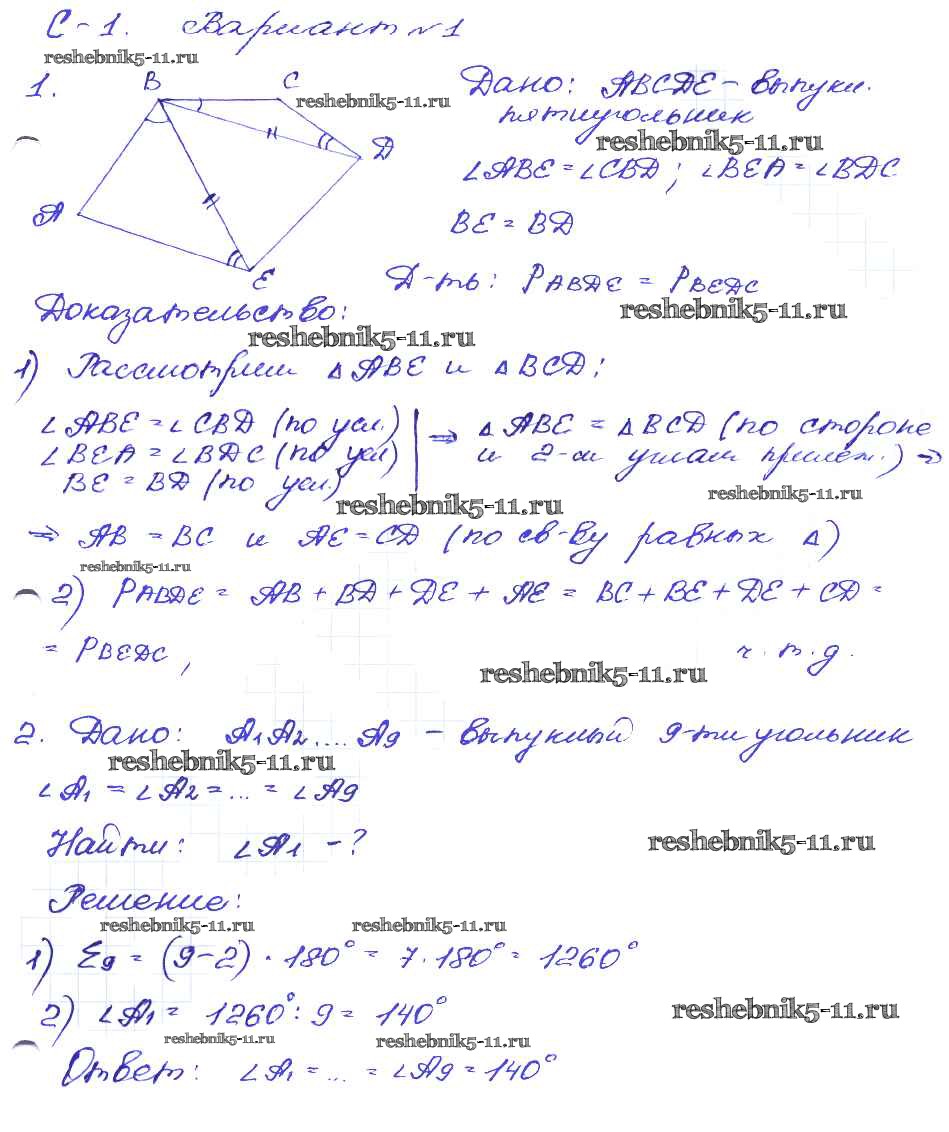 С-1. Вариант №1
reshebnik5-11.ru
1.
B
C
reshebnik5-11.ru
Дано: ABCDE - выпукл.
пятиугольник
reshebnik5-11.ru
D
∠ABE = ∠CBD ; ∠BEA = ∠BDC
A
BE = BD
E
Д-ть: PABDE = PBEDC
reshebnik5-11.ru
Доказательство:
reshebnik5-11.ru
1) Рассмотрим △ABE и △BCD;
∠ABE = ∠CBD (по усл.) ⇒ △ABE = △BCD (по стороне
∠BEA = ∠BDC (по усл) и 2-м углам прилеж.) ⇒
BE = BD (по усл.)
reshebnik5-11.ru
reshebnik5-11.ru
⇒ AB = BC и AE = CD (по св-ву равных △)
reshebnik5-11.ru
2) PABDE = AB + BD + DE + AE = BC + BE + DE + CD =
= PBEDC, ч.т.д.
reshebnik5-11.ru
2. Дано: A1A2....A9 - выпуклый 9-ти угольник
reshebnik5-11.ru
∠A1 = ∠A2 = ... = ∠A9
Найти: ∠A1 - ?
reshebnik5-11.ru
Решение:
reshebnik5-11.ru reshebnik5-11.ru
1) Σ9 = (9-2) · 180° = 7·180° = 1260°
2) ∠A1 = 1260° : 9 = 140°
reshebnik5-11.ru
reshebnik5-11.ru reshebnik5-11.ru
Ответ: ∠A1 = ... = ∠A9 = 140°